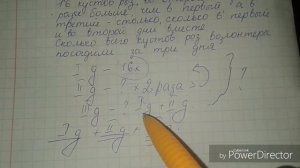 16 кустов роз, во
раза больше, чем в первый, а в
третий - столько, сколько в первый
и во второй дни вместе.
Сколько всего кустов роз волонтера
посадили за три дня?
I д - 16к
II д - ? × 2 раза >
III д - ? I д + II д
?
I д + II д +
Made With
PowerDirector